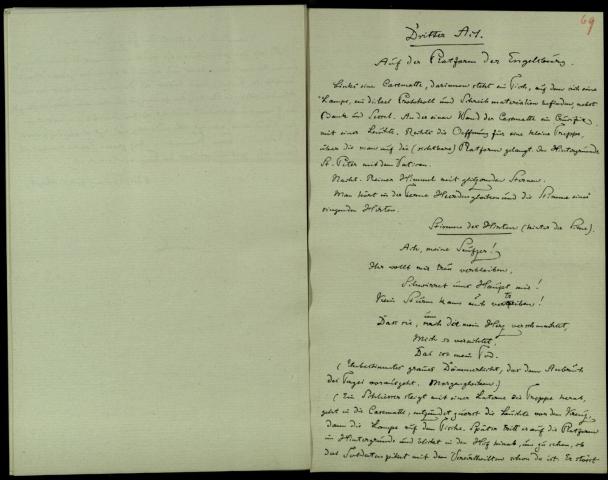 69
Dritter Act.
Auf der Platform der Engelsburg.
Links eine Casematte, darinnen steht ein Tisch, auf dem sich eine
Lampe, ein dickes Protokoll und Schreibmaterialien befinden, nebst
Bank und Sessel. An der einen Wand der Casematte ein Crucifix
mit einer Leuchte. Rechts die Oeffnung für eine kleine Treppe,
über die man auf die (sichtbare) Platform gelangt. Im Hintergrunde
St. Peter mit dem Vatican.
Nacht. Reiner Himmel mit glitzernden Sternen.
Man hört in der Ferne Heerdenglocken und die Stimme eines
singenden Hirten.
Stimme des Hirten (hinter der Scene).
Ach, meine Seufzer!
Ihr wollt mir treu verbleiben,
Schwirret ums Haupt mir!
Kein Sturm kann euch vertreiben!
Dass sie, um die mein Herz verschmachtet,
Mich so verachtet
Das ist mein Tod.
(Unbestimmtes graues Dämmerlicht, das dem Anbruch
des Tages vorausgeht. Morgenglocken.)
(Ein Schliesser steigt mit einer Laterne die Treppe herab,
geht in die Casematte, entzündet zuerst die Leuchte vor dem Kreuz,
dann die Lampe auf dem Tische. Später tritt er auf die Platform
im Hintergrunde und blickt in den Hof hinab, um zu sehen, ob
das Soldatenpiket mit dem Verurtheilten schon da ist. Er